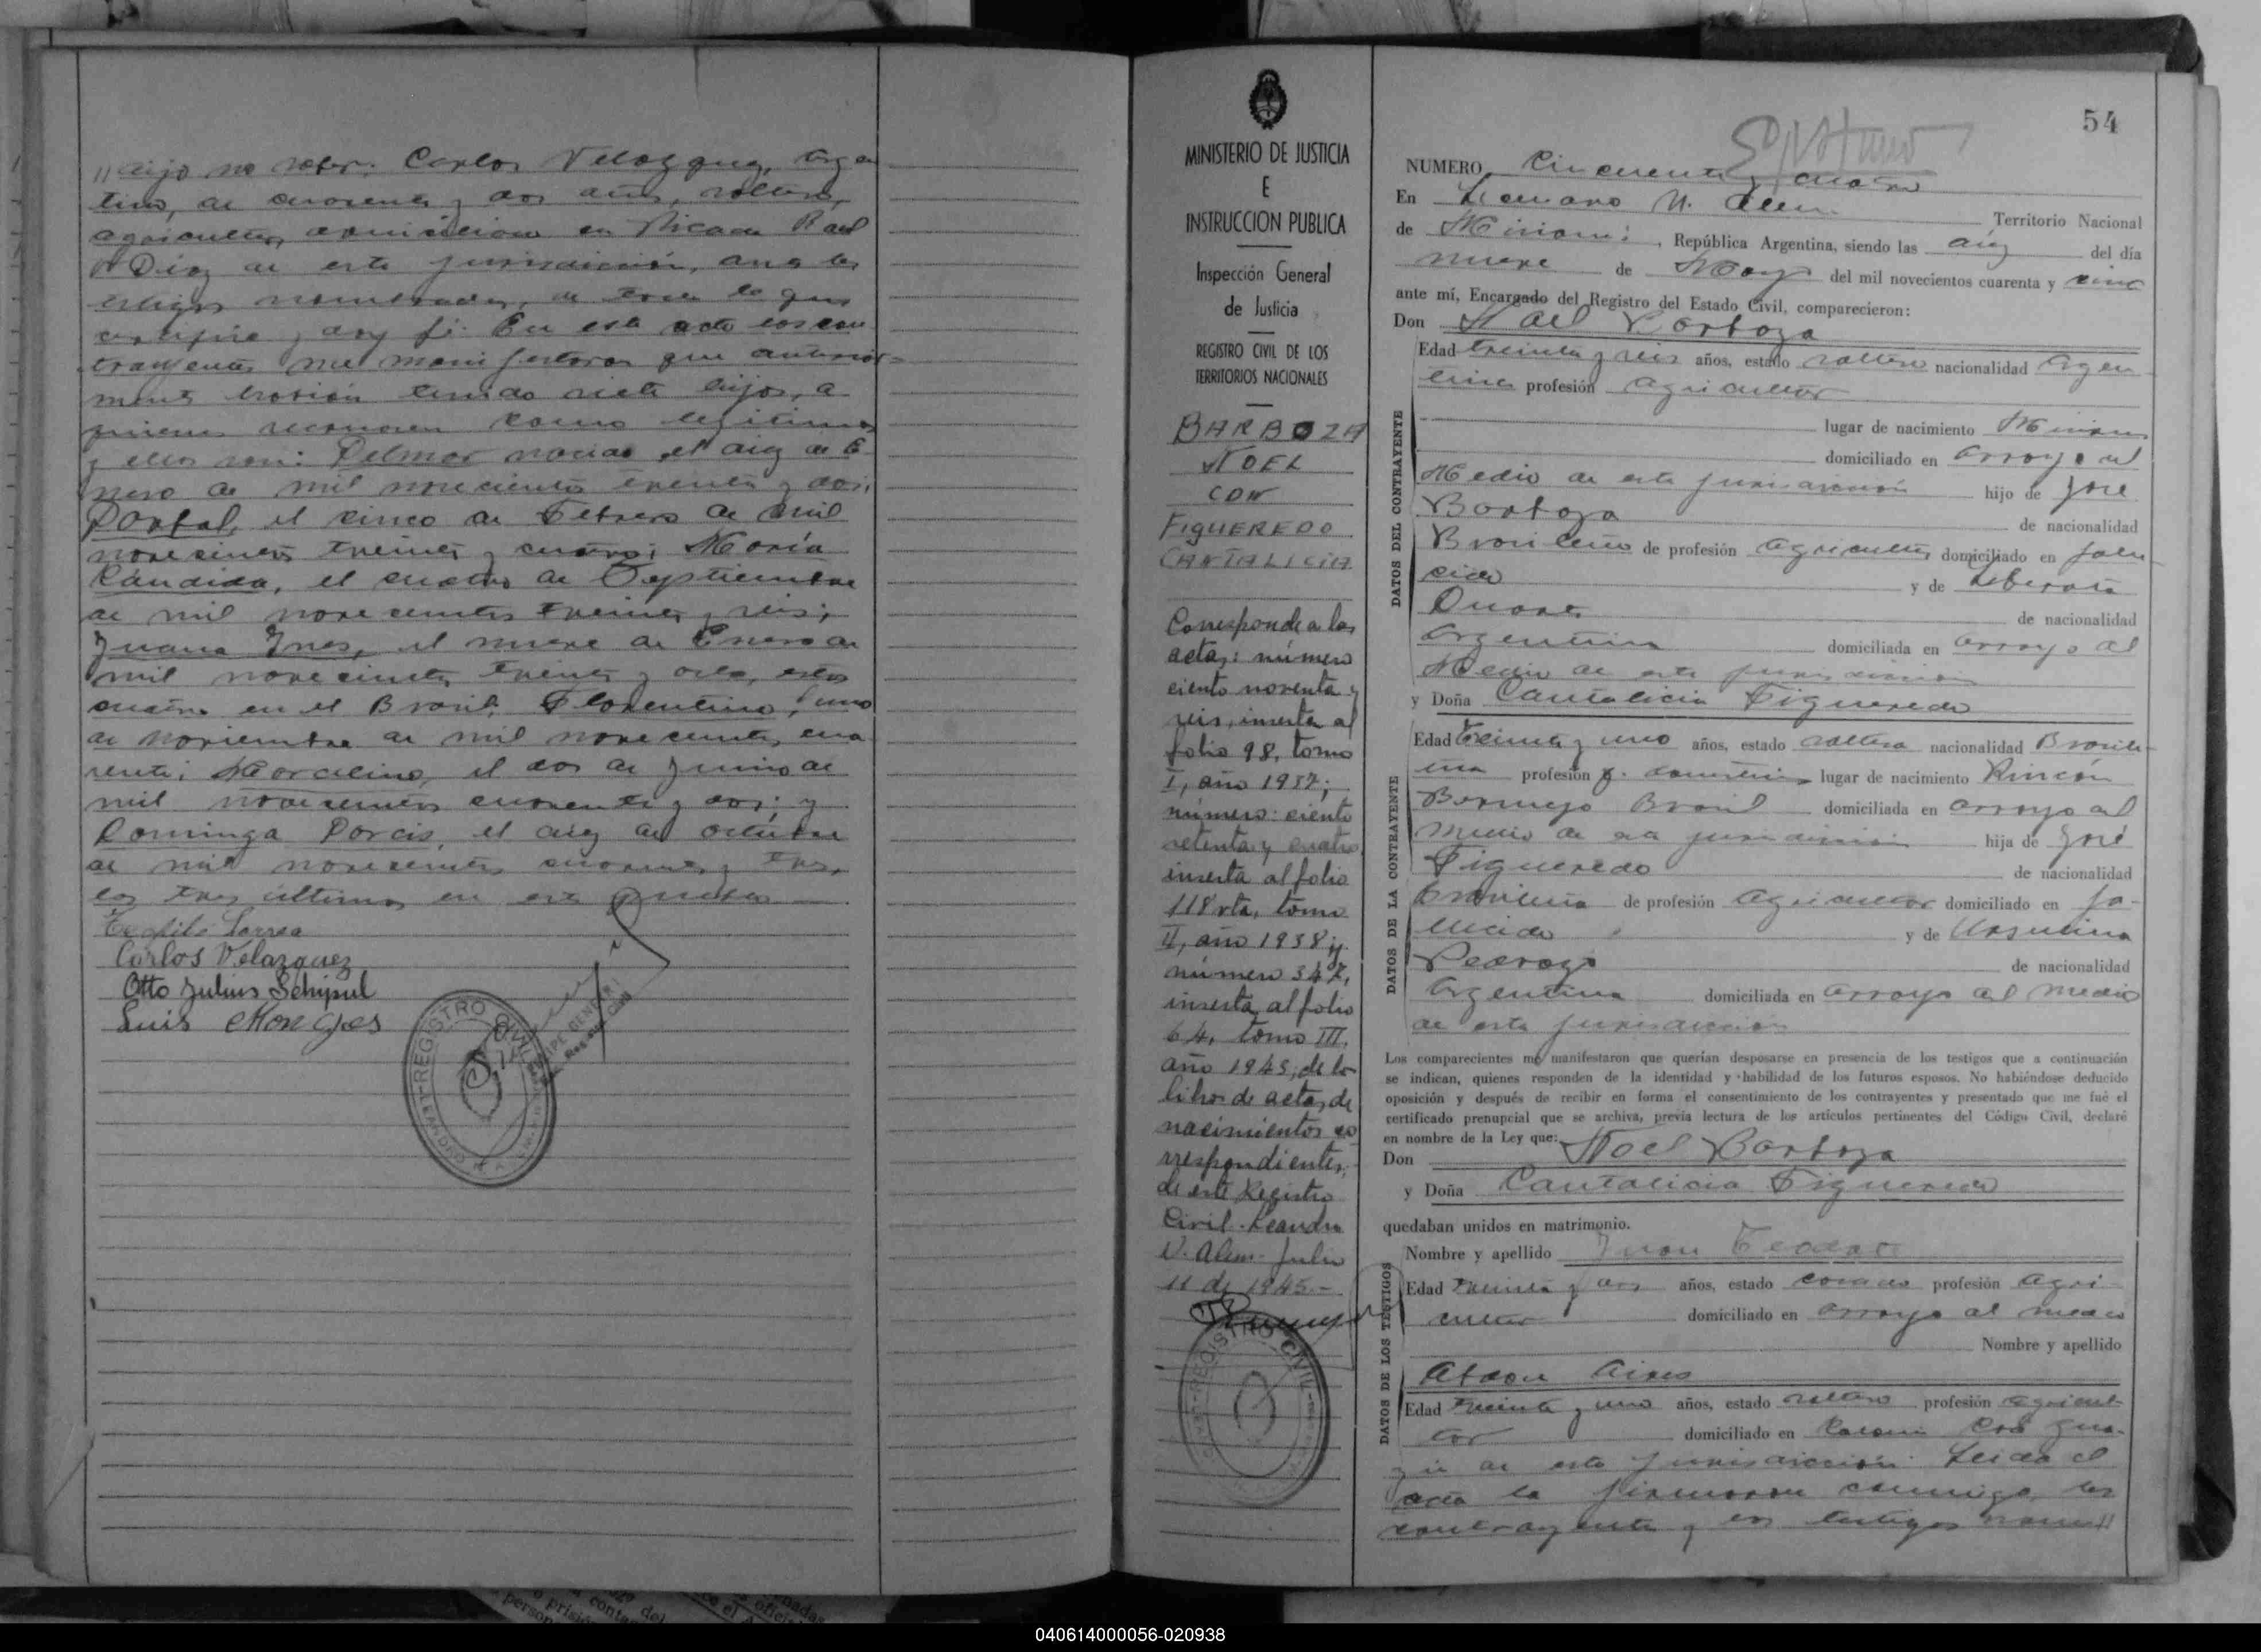 //dijo no saber: Carlos Velazquez, Argen
tino, de cuarenta y dos años, soltero,
agricultor, domiciliado en Picada Rael
Diaz de esta jurisdicción, and los
testigos nombrados, de todo lo que
certifico y doy fé. En este acto los con
trayentes me manifestaron que anterior=
mente habian tenido siete hijos, a
quienes reconocen como legitimos
y ellos son: Delmar nacido el diez de E-
nero de mil novecientos treinta y dos;
Dorbal, el cinco de Febrero de mil
novecientos treinta y cuatro; María
Cándida, el cuatro de Septiembre
de mil novecientos treinta y seis;
Juana Ines, el nueve de Enero de
mil novecientos treinta y ocho, estos
cuatro en el Brasil; Florentino, uno
de noviembre de mil novecientos cua
renta; Marcelino, el dos de Junio de
mil novecientos cuarenta y dos; y
Dominga Dorcis, el diez de octubre
de mil novecientos cuarenta y tres,
los tres últimos en este pueblo
Teofilo Correa
Carlos Velazquez
Otto Julius Schipul
Luis
REGISTRO CIVIL
MINISTERIO DE JUSTICIA
E
INSTRUCCION PUBLICA
Inspección General
de Justicia
REGISTRO CIVIL DE LOS
TERRITORIOS NACIONALES
BARBOZA
NOEL
CON
FIGUEREDO
CANTALICIA
Corresponde a las
actas: número
ciento noventa y
seis, inserta al
folio 98, tomo
I, año 1937;
número: ciento
setenta y cuatro
inserta al folio
118 vta, tomo
II, año 1938 y
número 347,
inserta al folio
64, tomo III,
año 1945, de los
libros de actas de
nacimientos co
rrespondientes,
de este Registro
Civil. Leandro
N. Alem. Julio
11 de 1945.-
REGISTRO CIVIL
54
NUMERO Cincuenta y cuatro
En Leandro N. Alem Territorio Nacional
de Misiones, República Argentina, siendo las diez del día
nueve de Mayo del mil novecientos cuarenta y cinco
ante mí, Encargado del Registro del Estado Civil, comparecieron:
Don Noel Barboza
DATOS DEL CONTRAYENTE
Edad treinta y seis años, estado soltero nacionalidad Argen
tina profesión agricultor
lugar de nacimiento Misiones
domiciliado en arroyo al
Medio de esta jurisdicción hijo de José
Barboza de nacionalidad
Brasileño de profesión Agricultor domiciliado en falle
cido y de Liberata
Duarte de nacionalidad
Argentina domiciliada en arroyo al
Medio de esta jurisdicción
y Doña Cantalicia Figueredo
DATOS DE LA CONTRAYENTE
Edad treinta y uno años, estado soltera nacionalidad Brasile-
ña profesión q. domésticos lugar de nacimiento Rincón
Bermejo Brasil domiciliada en arroyo al
medio de esta jurisdicción hija de José
Figueredo de nacionalidad
Brasileña de profesión Agricultor domiciliado en fa-
llecido y de Ursulina
Pedrozo de nacionalidad
Argentina domiciliada en arroyo al medio
de esta jurisdicción
Los comparecientes me manifestaron que querían desposarse en presencia de los testigos que a continuación
se indican, quienes responden de la identidad y habilidad de los futuros esposos. No habiéndose deducido
oposición y después de recibir en forma el consentimiento de los contrayentes y presentado que me fué el
certificado prenupcial que se archiva, previa lectura de los artículos pertinentes del Código Civil, declaré
en nombre de la Ley que:
Don Noel Barboza
y Doña Cantalicia Figueredo
quedaban unidos en matrimonio.
DATOS DE LOS TESTIGOS
Nombre y apellido Juan
Edad treinta y dos años, estado casado profesión Agri
cultor domiciliado en arroyo al medio
Nombre y apellido
Abdon Aires
Edad treinta y uno años, estado soltero profesión agricul-
tor domiciliado en
de esta jurisdicción. Leida el
acta la firmaron conmigo, los
contrayentes y los testigos nom//
040614000056-020938